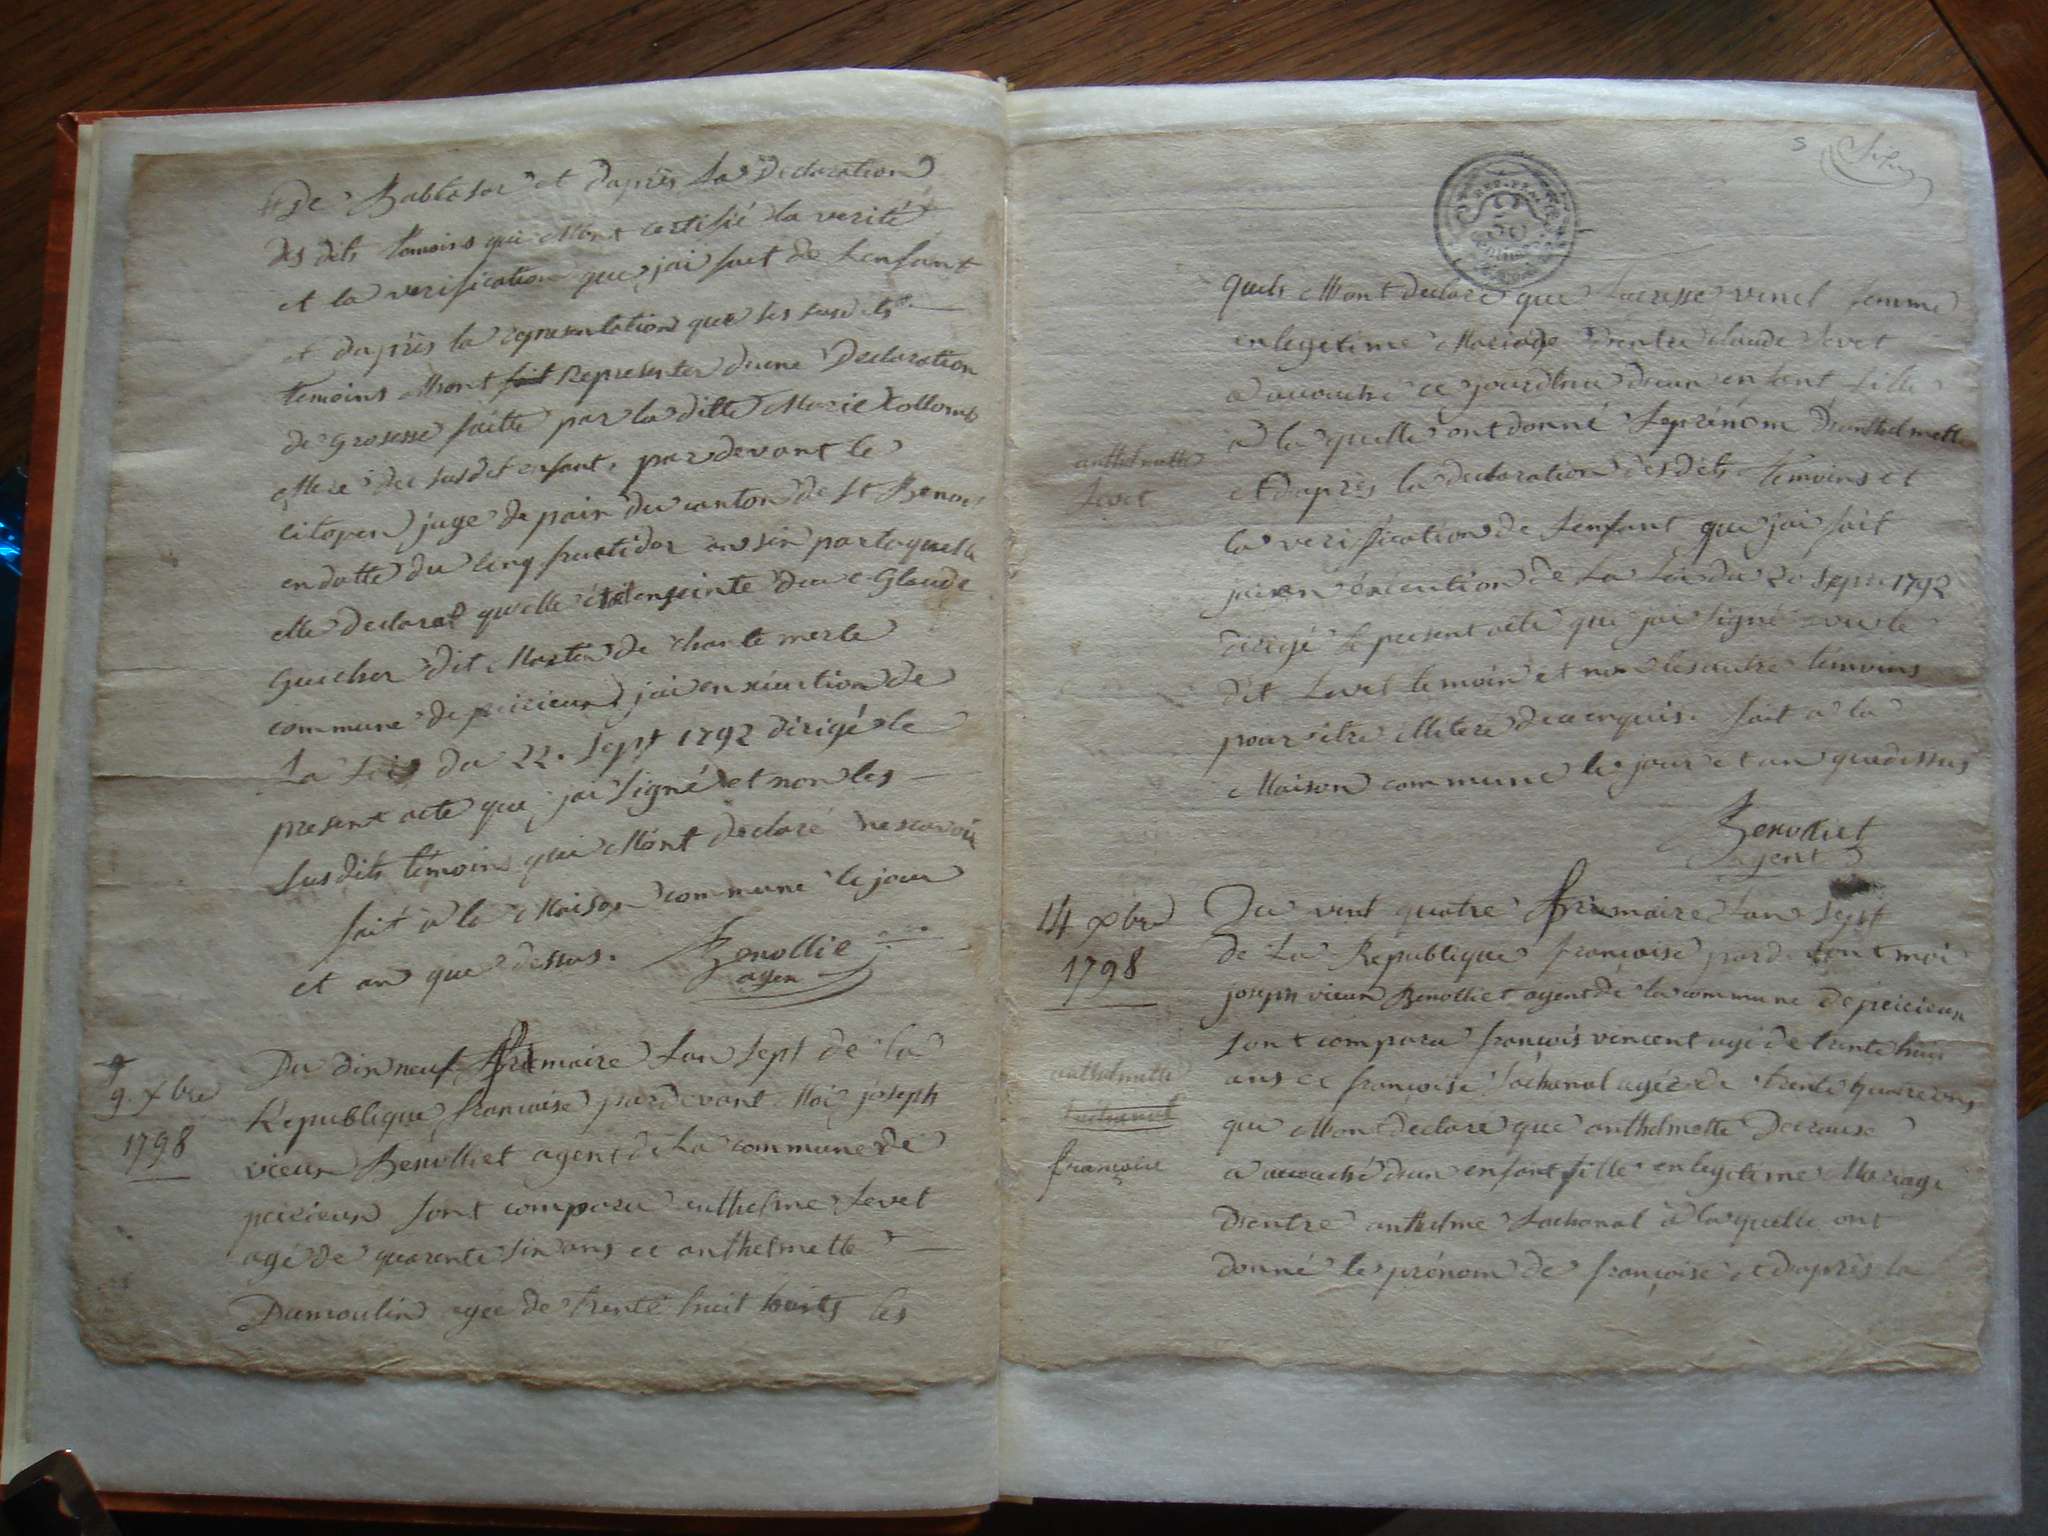 de et daprès la Declaration
des dits temoins qui Mont certifié la verité
et la verification que jai fait de Lenfant
et daprès la representation que les susdits
temoins Mont fait representer dune Declaration
de Grosesse faitte par la ditte Marie Collomb
Mere du susdit enfant, pardevant le
citoyen juge de paix du canton de St Benoit
en datte du cinq fructidor an six par laquelle
elle declarat quelle étoit enseinte du C. Glaude
Guicher dit Martin de Chantemerle
commune de peizieux jai en exécution de
La Loi du 22. Sept 1792 dirigé le
present acte que jai signé et non les
susdits temoins qui Mont declaré ne scavoir
fait à la Maison commune le jour
et an que dessus. Benolliet
agen
9. xbre
1798
Du dix neuf frimaire Lan sept de la
Republique françoise pardevant Moi joseph
vieux Benolliet agent de La commune de
peizieux sont comparu anthelme Levet
agé de quarente six ans et anthelmette
Dumoulin agee de trente huit les
5
quels Mont declaré que vincent femme
en legetime Mariage dentre Claude Levet
a accouché ce jourdhui dun enfant fille
à la quelle ont donné Le prénom danthelmette
anthelmette
Levet
et daprès la declaration des dits temoins et
la verification de Lenfant que jai fait
jai en exécution de La Loi du 20 Sepre 1792
dirigé le present acte que jai signé avec le
dit Levet temoin et non les autre temoins
pour être illiteré de ce enquis. fait a la
Maison commune le jour et an que dessus
Benolliet
agent
14 xbre
1798
Du vint quatre frimaire Lan sept
de La Republique françoise pardevant moi
joseph vieux Benolliet agent de la commune de peizieux
sont comparu françois vincent agé de trente huit
ans et françoise Lachanal agée de trente quatre ans
anthelmette
Lachanal
françoise
que Mont declaré que anthelmette Decrause
a accouché dun enfant fille en legetime Mariage
dentre anthelme Lachanal à la quelle ont
donné le prénom de françoise et daprès la